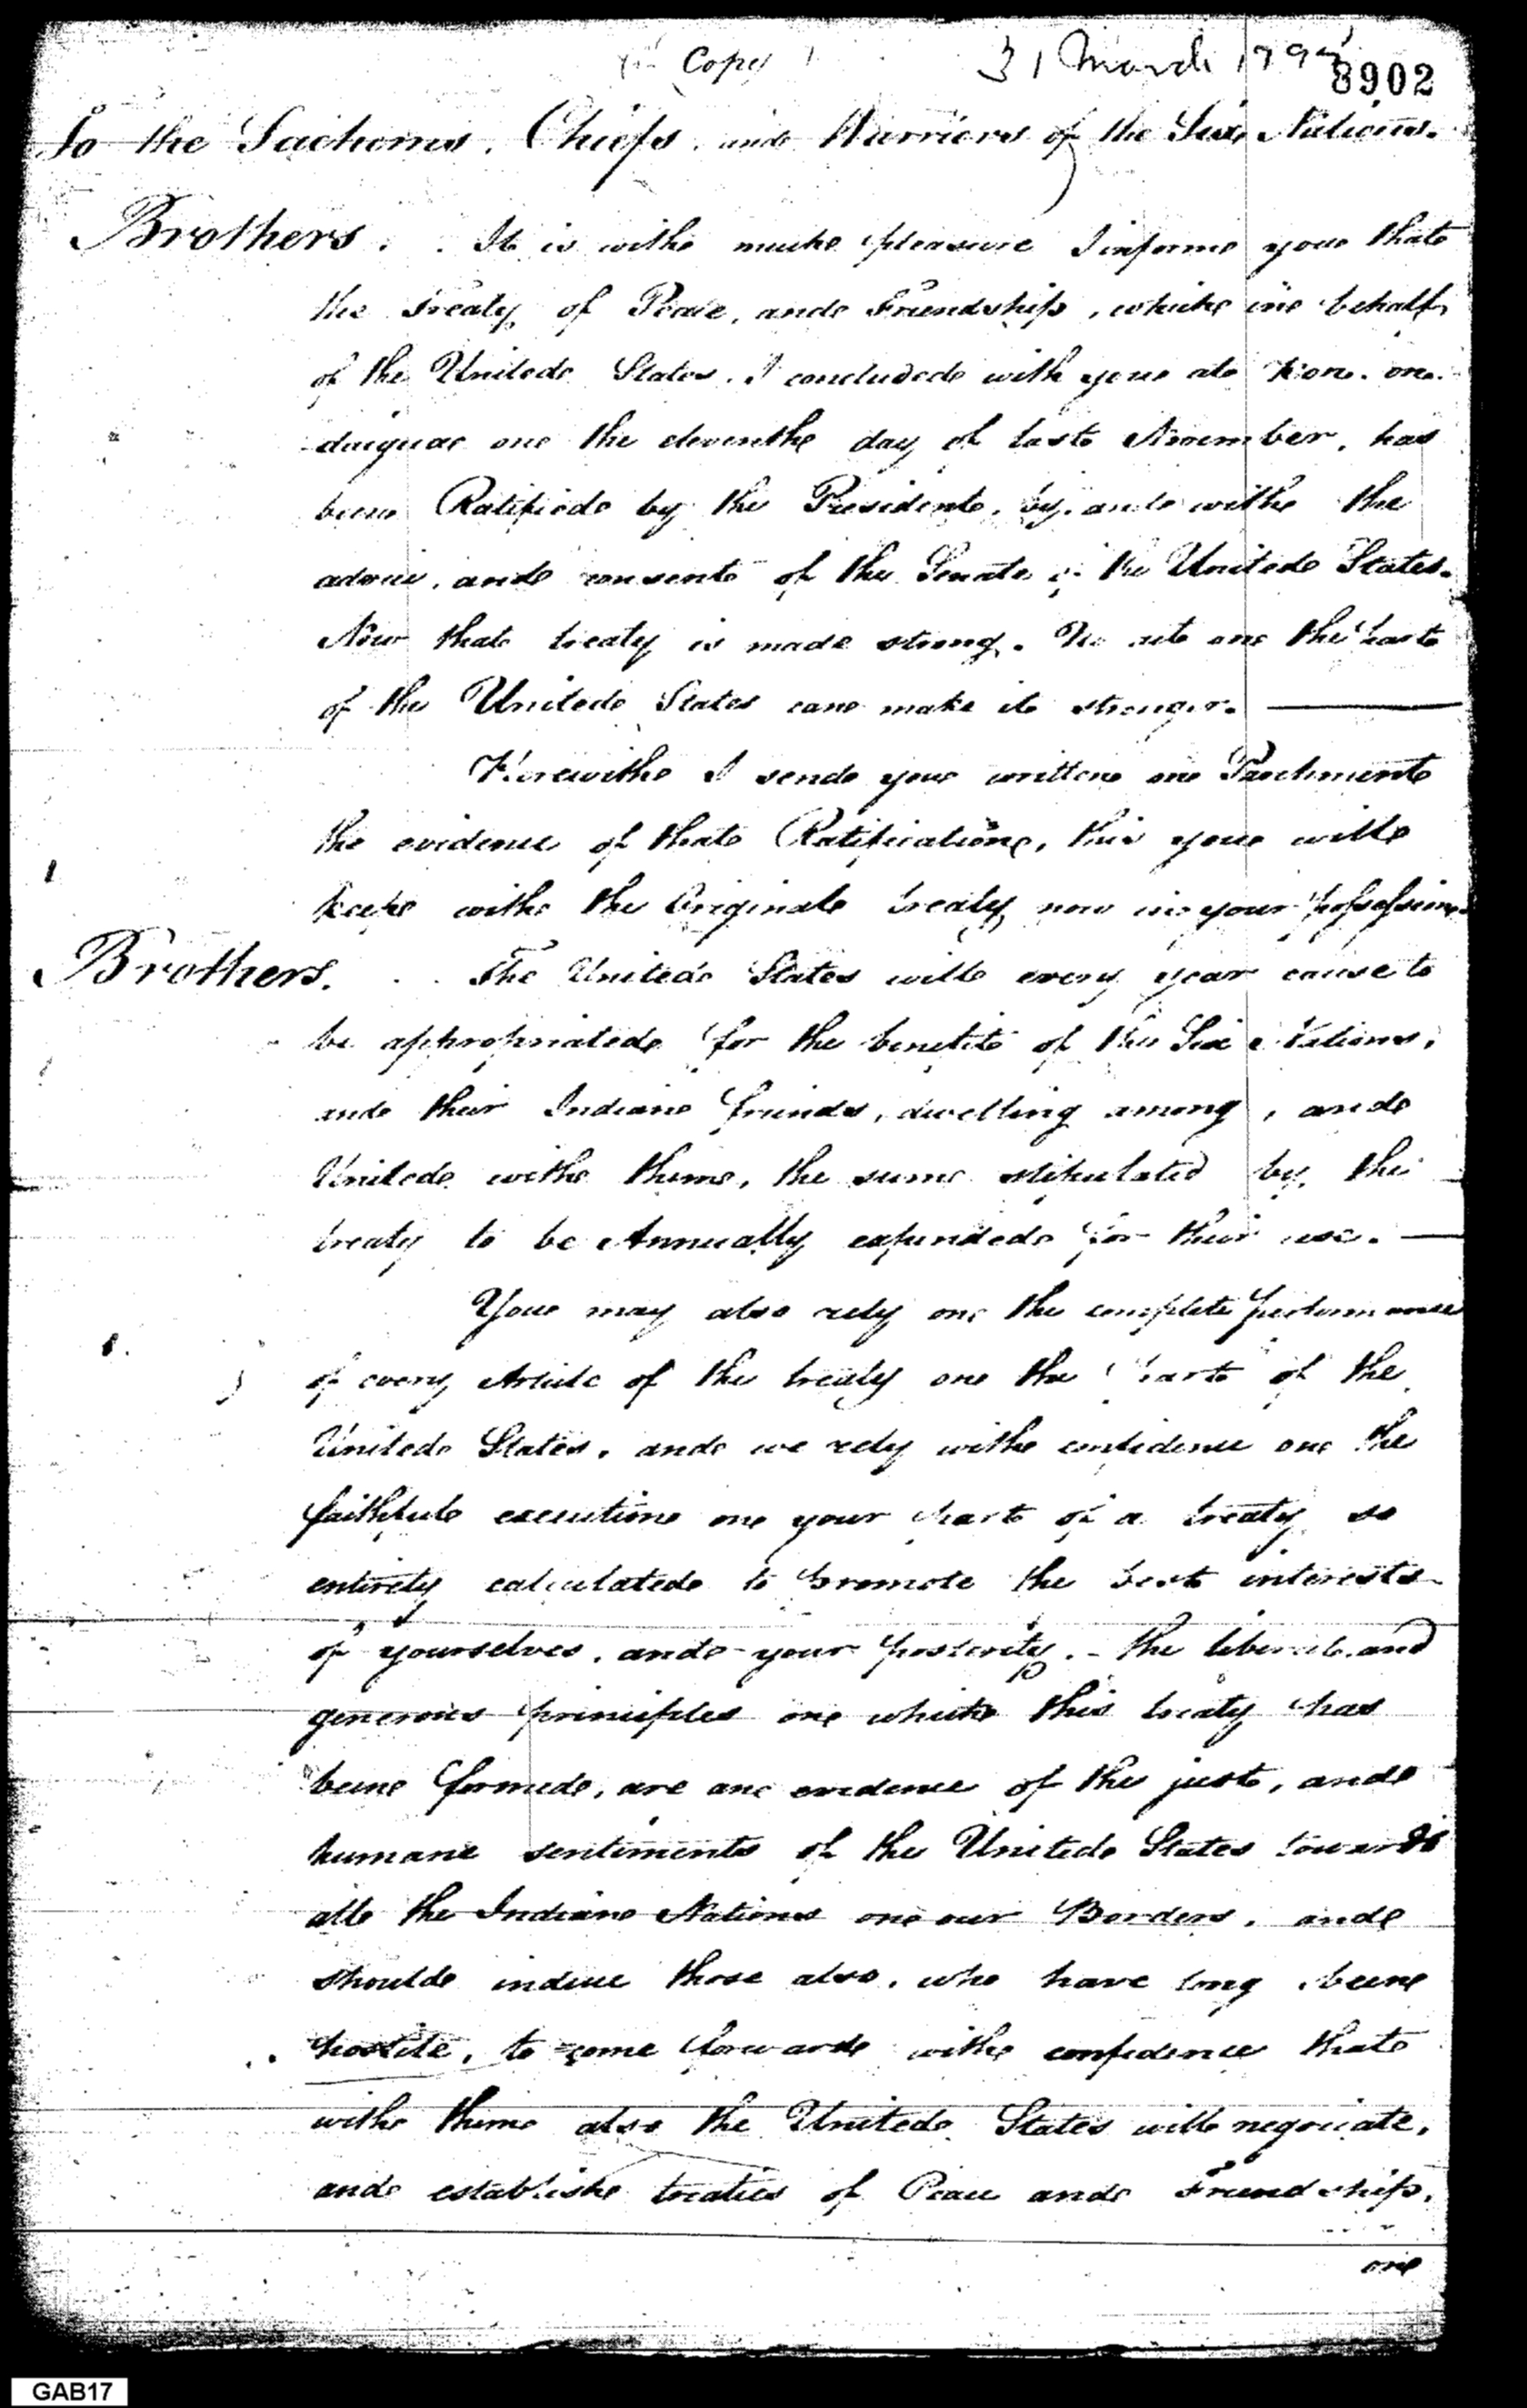 Copy
31 March 1795
8902
To the Sachems, Chiefs, and Warriors of the Six Nations.
Brothers. It is with much pleasure I inform you that
the Treaty of Peace, and Friendship, which in behalf
of the United States, I concluded with you at Kon. on.
daigua on the eleventh day of last November, has
been Ratified by the President, by, and with the
advice, and consent of the Senate of the United States.
Now that treaty is made strong. No act on the part
of the United States can make it stronger.
Herewith I send you written on Parchment
the evidence of that Ratification, this you will
keep with the Original treaty now in your possession.
Brothers. The United States will every year cause to
be appropriated for the benefit of the Six Nations,
and their Indian friends, dwelling among, and
United with them, the sum stipulated by the
treaty to be Annually expended for their use.
You may also rely on the complete performance
of every Article of the treaty on the part of the
United States, and we rely with confidence on the
faithful execution on your part of a treaty so
entirely calculated to promote the best interests
of yourselves, and your posterity. - The liberal and
generous principles on which this treaty has
been formed, are an evidence of the just, and
humane sentiments of the United States towards
all the Indian Nations on our Borders, and
should induce those also, who have long been
hostile, to come forward with confidence that
with them also the United States will negociate,
and establish treaties of Peace and Friendship,
on
GAB17